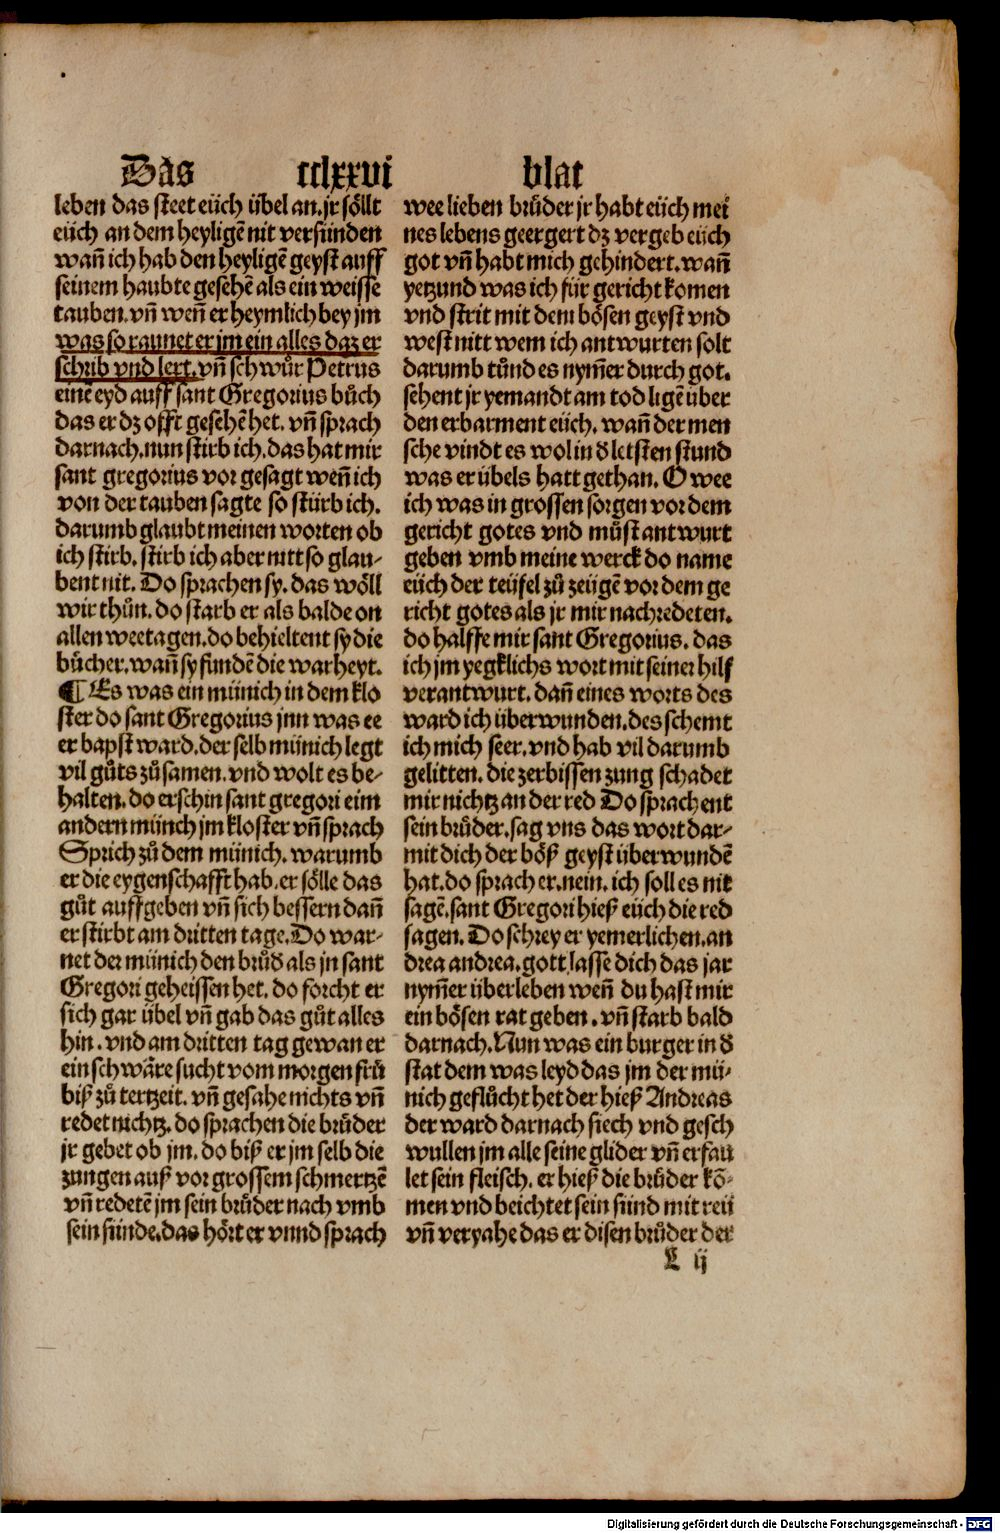 Das cclxxvi blat
leben das steet eüch übel an. jr söllt
eüch an dem heyligē nit versünden
wañ ich hab den heyligē geyst auff
seinem haubte gesehē als ein weisse
tauben. vñ weñ er heymlich bey jm
was so raunet er jm ein alles daz er
schrib vnd lert. vñ schwůr Petrus
einē eyd auff sant Gregorius bůch
das er dz offt gesehē het. vñ sprach
darnach. nun stirb ich. das hat mir
sant gregorius vor gesagt weñ ich
von der tauben sagte so stürb ich.
darumb glaubt meinen worten ob
ich stirb. stirb ich aber nitt so glau-
bent nit. Do sprachen sy. das wöll
wir thůn. do starb er als balde on
allen weetagen. do behieltent sy die
bücher. wañ sy fundē die warheyt.
¶ Es was ein münich in dem klo
ster do sant Gregorius jnn was ee
er bapst ward. der selb münich legt
vil gůts zůsamen. vnd wolt es be-
halten. do erschin sant gregori eim
andern münch jm kloster vñ sprach
Sprich zů dem münich. warumb
er die eygenschafft hab. er sölle das
gůt auffgeben vñ sich bessern dañ
er stirbt am dritten tage. Do war-
net der münich den brůd als jn sant
Gregori geheissen het. do forcht er
sich gar übel vñ gab das gůt alles
hin. vnd am dritten tag gewan er
ein schwäre sucht vom morgen frů
biß zů tertzeit. vñ gesahe nichts vñ
redet nichtz. do sprachen die brüder
jr gebet ob jm. do biß er jm selb die
zungen auß vor grossem schmertzē
vñ redetē jm sein brüder nach vmb
sein sünde. das hört er vnnd sprach
wee lieben brüder jr habt eüch mei
nes lebens geergert dz vergeb eüch
got vñ habt mich gehindert. wañ
yetzund was ich für gericht komen
vnd strit mit dem bösen geyst vnd
west nitt wem ich antwurten solt
darumb tünd es nym̄er durch got.
sehent jr yemandt am tod ligē über
den erbarment eüch. wañ der men
sche vindt es wol in d letsten stund
was er übels hatt gethan. O wee
ich was in grossen sorgen vor dem
gericht gotes vnd můst antwurt
geben vmb meine werck do name
eüch der teüfel zů zeügē vor dem ge
richt gotes als jr mir nachredeten.
do halffe mir sant Gregorius. das
ich jm yegklichs wort mit seiner hilf
verantwurt. dañ eines worts des
ward ich überwunden. des schemt
ich mich seer. vnd hab vil darumb
gelitten. die zerbissen zung schadet
mir nichtz an der red Do sprachent
sein brüder. sag vns das wort dar-
mit dich der böß geyst überwundē
hat. do sprach er. nein. ich soll es nit
sagē. sant Gregori hieß eüch die red
sagen. Do schrey er yemerlichen. an
drea andrea. gott lasse dich das jar
nym̄er überleben weñ du hast mir
ein bösen rat geben. vñ starb bald
darnach. Nun was ein burger in d
stat dem was leyd das jm der mü-
nich geflůcht het der hieß Andreas
der ward darnach siech vnd gesch
wullen jm alle seine glider vñ erfau
let sein fleisch. er hieß die brüder kō-
men vnd beichtet sein sünd mit reü
vñ veryahe das er disen brüder der
L ij
Digitalisierung gefördert durch die Deutsche Forschungsgemeinschaft - DFG